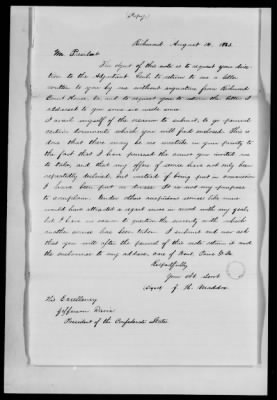 (Copy)
Richmond August 14, 1863.
Mr. President
The object of this note is to request your direc-
tion to the Adjutant Genl. to return to me a letter
written to you by me without signature from Richmond
Court House, Va. and to request you to return the letter I
addressed to you some six weeks since
I avail myself of the occasion to submit, to your perusal
certain documents which you will find enclosed. This is
done that there may be no mistake in your mind as to
the fact that I have pursued the course you invited me
to take, and that my offers of service have not only been
repeatedly declined, but instead of being put in commission
I have been put in duress. It is not my purpose
to complain. Under other auspices services like mine
would have attracted a regard more in accord with my zeal,
but I have no reason to question the sincerity with which
another course has been taken. I submit and now ask
that you will after the perusal of this note return it and
the enclosures to my address, care of
Respectfully
Your obt. Servt
(signed) J. H. Maddox
His Excellency
Jefferson Davis
President of the Confederate States